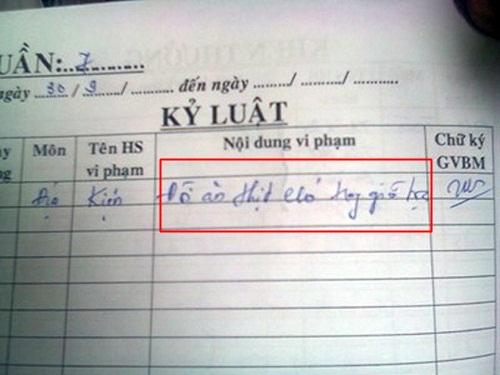 UẦN:...7...........
ngày ..30../..9../........... đến ngày ........./........./...........
KỶ LUẬT
Môn Tên HS vi phạm Nội dung vi phạm Chữ ký GVBM
Kiên ăn thịt chó giờ học